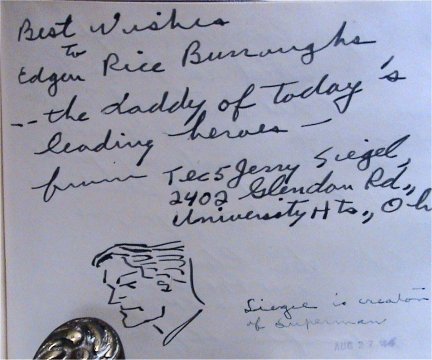 Best Wishes
to
Edgar Rice Burroughs
-- the daddy of today's
leading heroes —
from Tec 5 Jerry Siegel,
2402 Glendon Rd.,
University Hts., Oh
Siegel is creator
of Superman
AUG 27